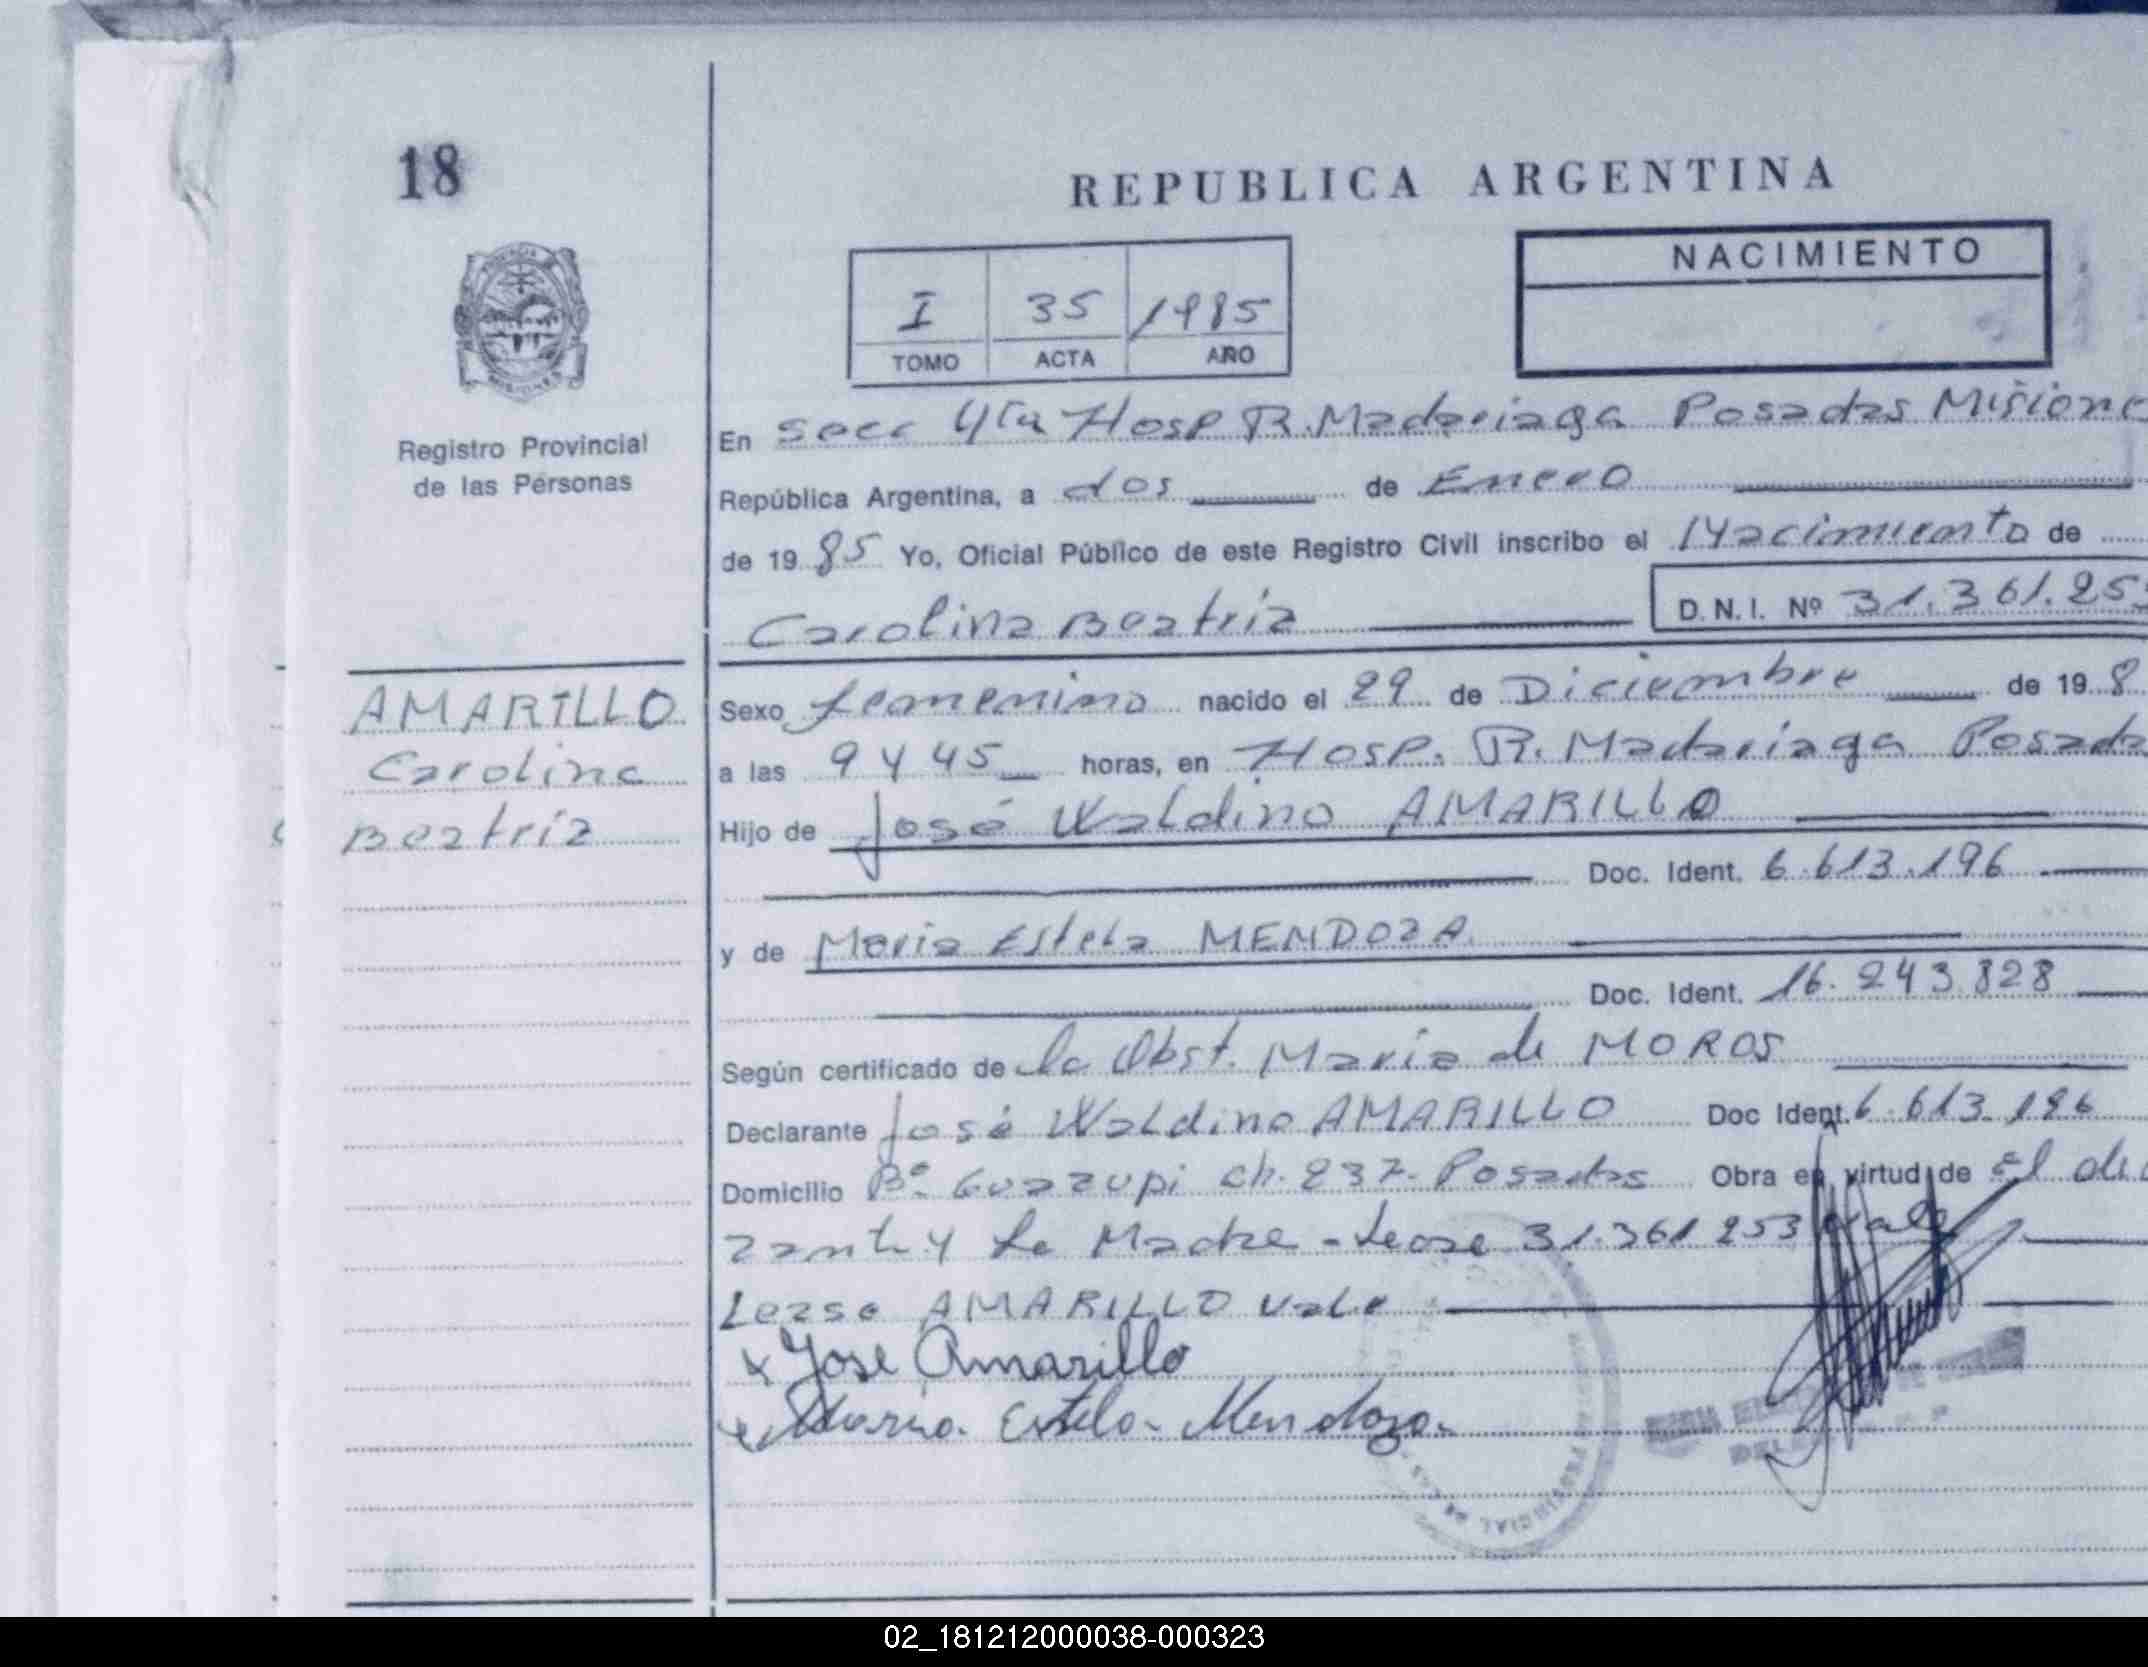 18
REPUBLICA ARGENTINA
NACIMIENTO
I 35 1985
TOMO ACTA AÑO
Registro Provincial
de las Personas
En Secc 4ta Hosp R. Madariaga Posadas Misione
República Argentina, a dos de Enero
de 1985 Yo, Oficial Público de este Registro Civil inscribo el Nacimiento de
Carolina Beatriz D.N.I. Nº 31.361.253
AMARILLO
Carolina
Beatriz
Sexo femenino nacido el 29 de Diciembre de 198
a las 9 y 45 horas, en Hosp. R. Madariaga Posada
Hijo de José Waldino AMARILLO
Doc. Ident. 6.613.196
y de Maria Estela MENDOZA
Doc. Ident. 16.243.828
Según certificado de la Obst. Maria de MOROS
Declarante José Waldino AMARILLO Doc Ident. 6.613.196
Domicilio Bº Guazupi ch. 237. Posadas Obra en virtud de El decl
rante y la Madre - Lease 31.361.253 Vale
Lease AMARILLO vale
x Jose Amarillo
x Maria Estela Mendoza
02_181212000038-000323